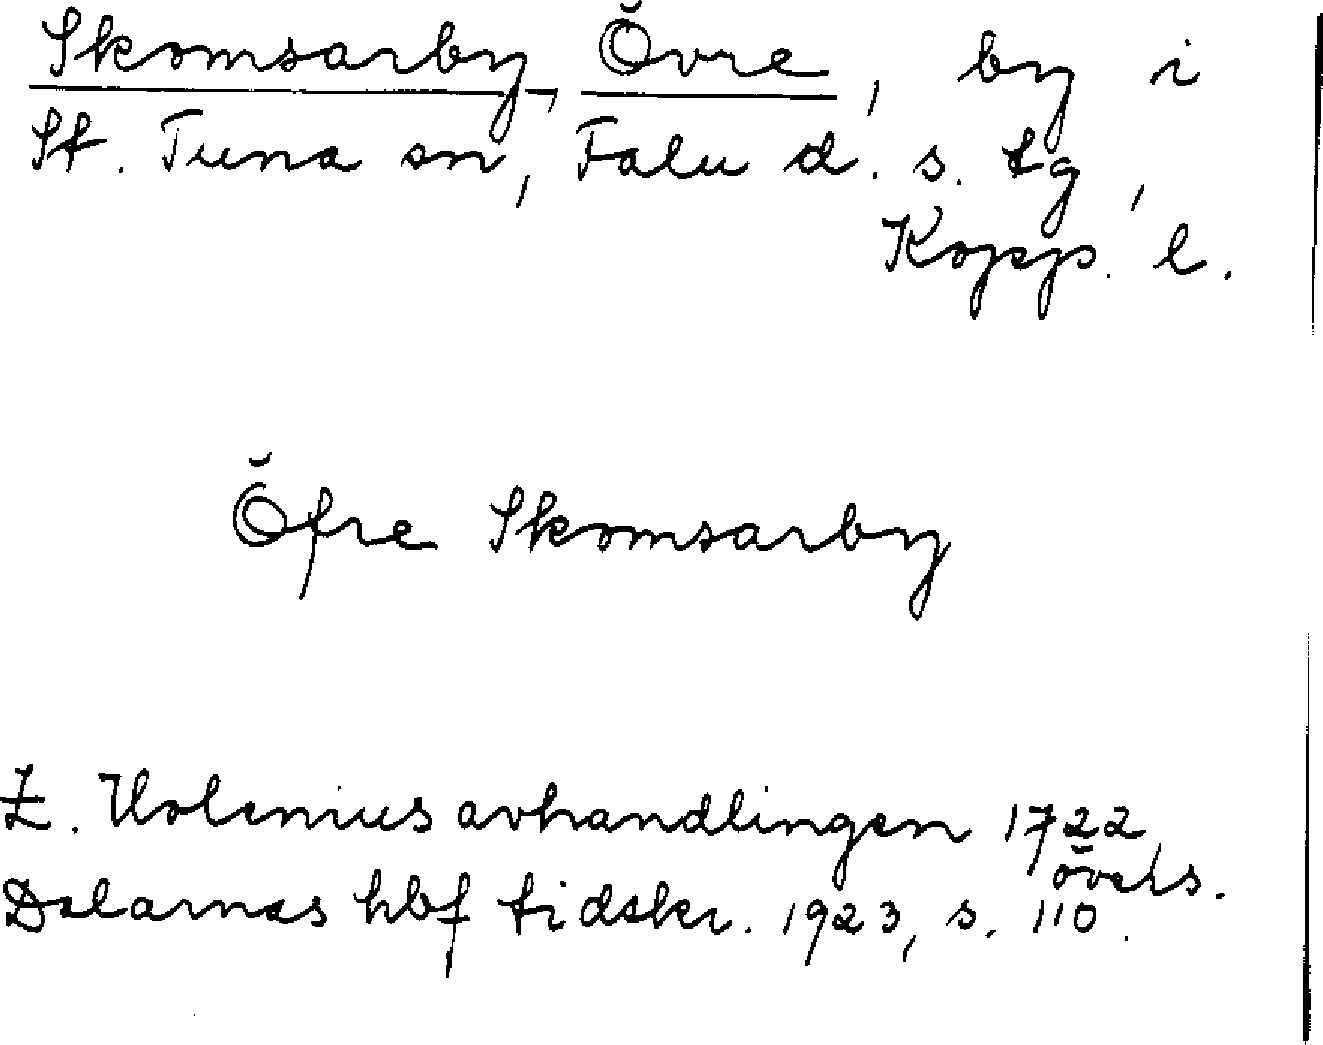 Skomsarby, Övre, by i
St. Tuna sn, Falu d. s. tg,
Kopp. l.
Öfre Skomsarby
E. Holenius avhandlingen 1722,
övers.
Dalarnas hbf tidskr. 1923, s. 110.